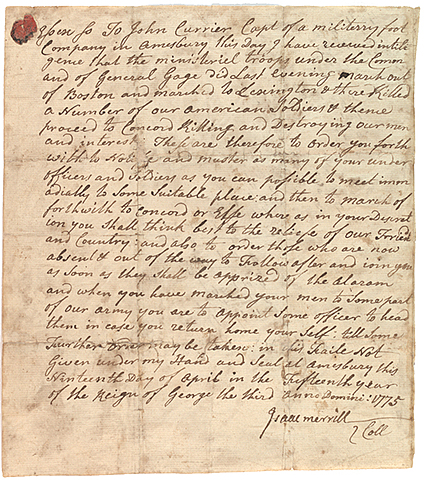 Essex ss To John Currier Capt of a military foot
Company in Amesbury this Day I have received intele
gence that the ministeriel troops under the Comm
and of General Gage did Last evening march out
of Boston and marched to Lexington & there Killed
a Number of our american Soldiers & thence
proceed to Concord Killing and Destroying our men
and interest: These are therefore to order you forth
with to Notife and muster as many of your under
officers and Soldiers as you can posible to meet imm
adiatly to Some Suitable place: and then to march of
forthwith to Concord or Else where as in your Descreti
ion you Shall think best to the reliefe of our Friends
and Country: and also to order those who are now
absent & out of the way to Follow after and ioin you
as soon as they Shall be apprized of the Alaram
and when you have marched your men to Some part
of our army you are to appoint Some officer to head
them in case you return home your Self: till Some
Further order may be taken: in this Faile Not
Given under my Hand and Seal at Amesbury this
Ninteenth Day of April in the Fifteenth year
of the Reign of George the third Anno Domini: 1775
Isaac merrill
Coll